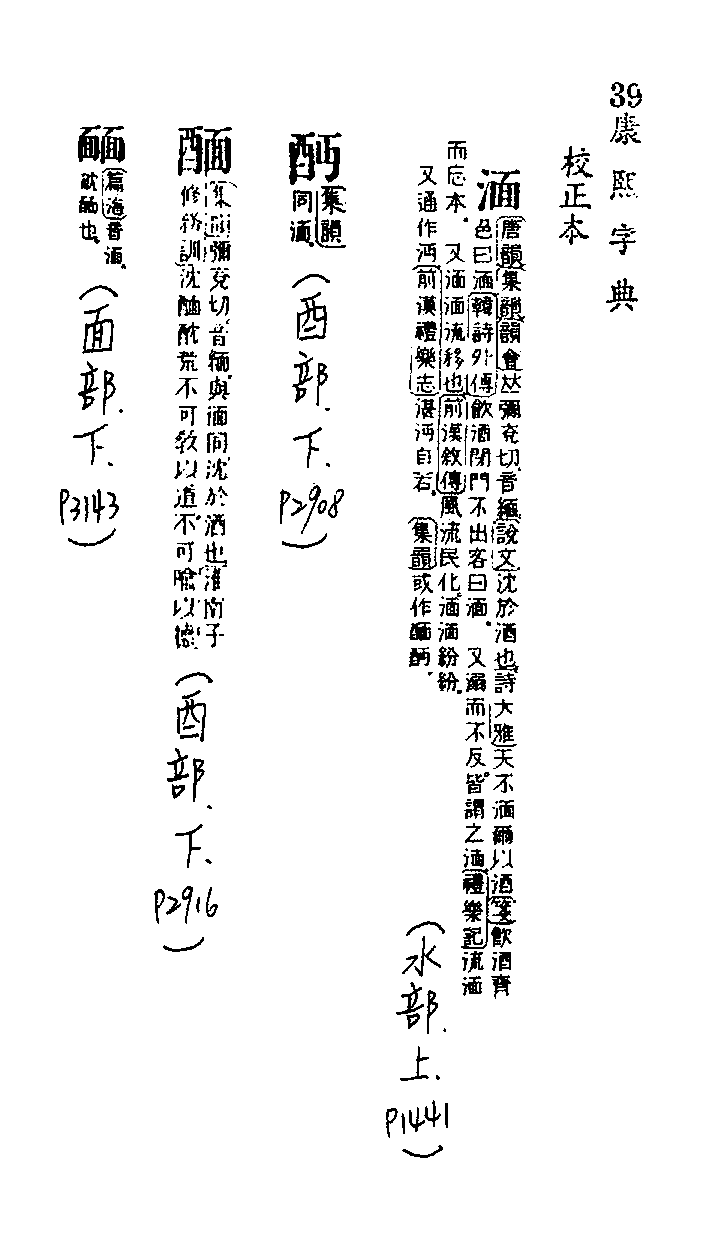 39康熙字典
校正本
湎
唐韻集韻韻會𠀤彌兗切音緬說文沈於酒也詩大雅天不湎爾以酒箋飲酒齊
色曰湎韓詩外傳飲酒閉門不出客曰湎。又溺而不反皆謂之湎禮樂記流湎
而忘本。又湎湎流移也前漢敘傳風流民化湎湎紛紛。
又通作沔前漢禮樂志湛沔自若。集韻或作醽酾。
(水部.上.P1441)
酾
集韻
同湎。
(酉部.下.P2908)
集韻彌兗切音緬與湎同沈於酒也淮南子
修務訓沈醽酖荒不可敎以道不可喩以德
(酉部.下.P2916)
篇海音湎。
酖酒也。
(面部.下.P3143)